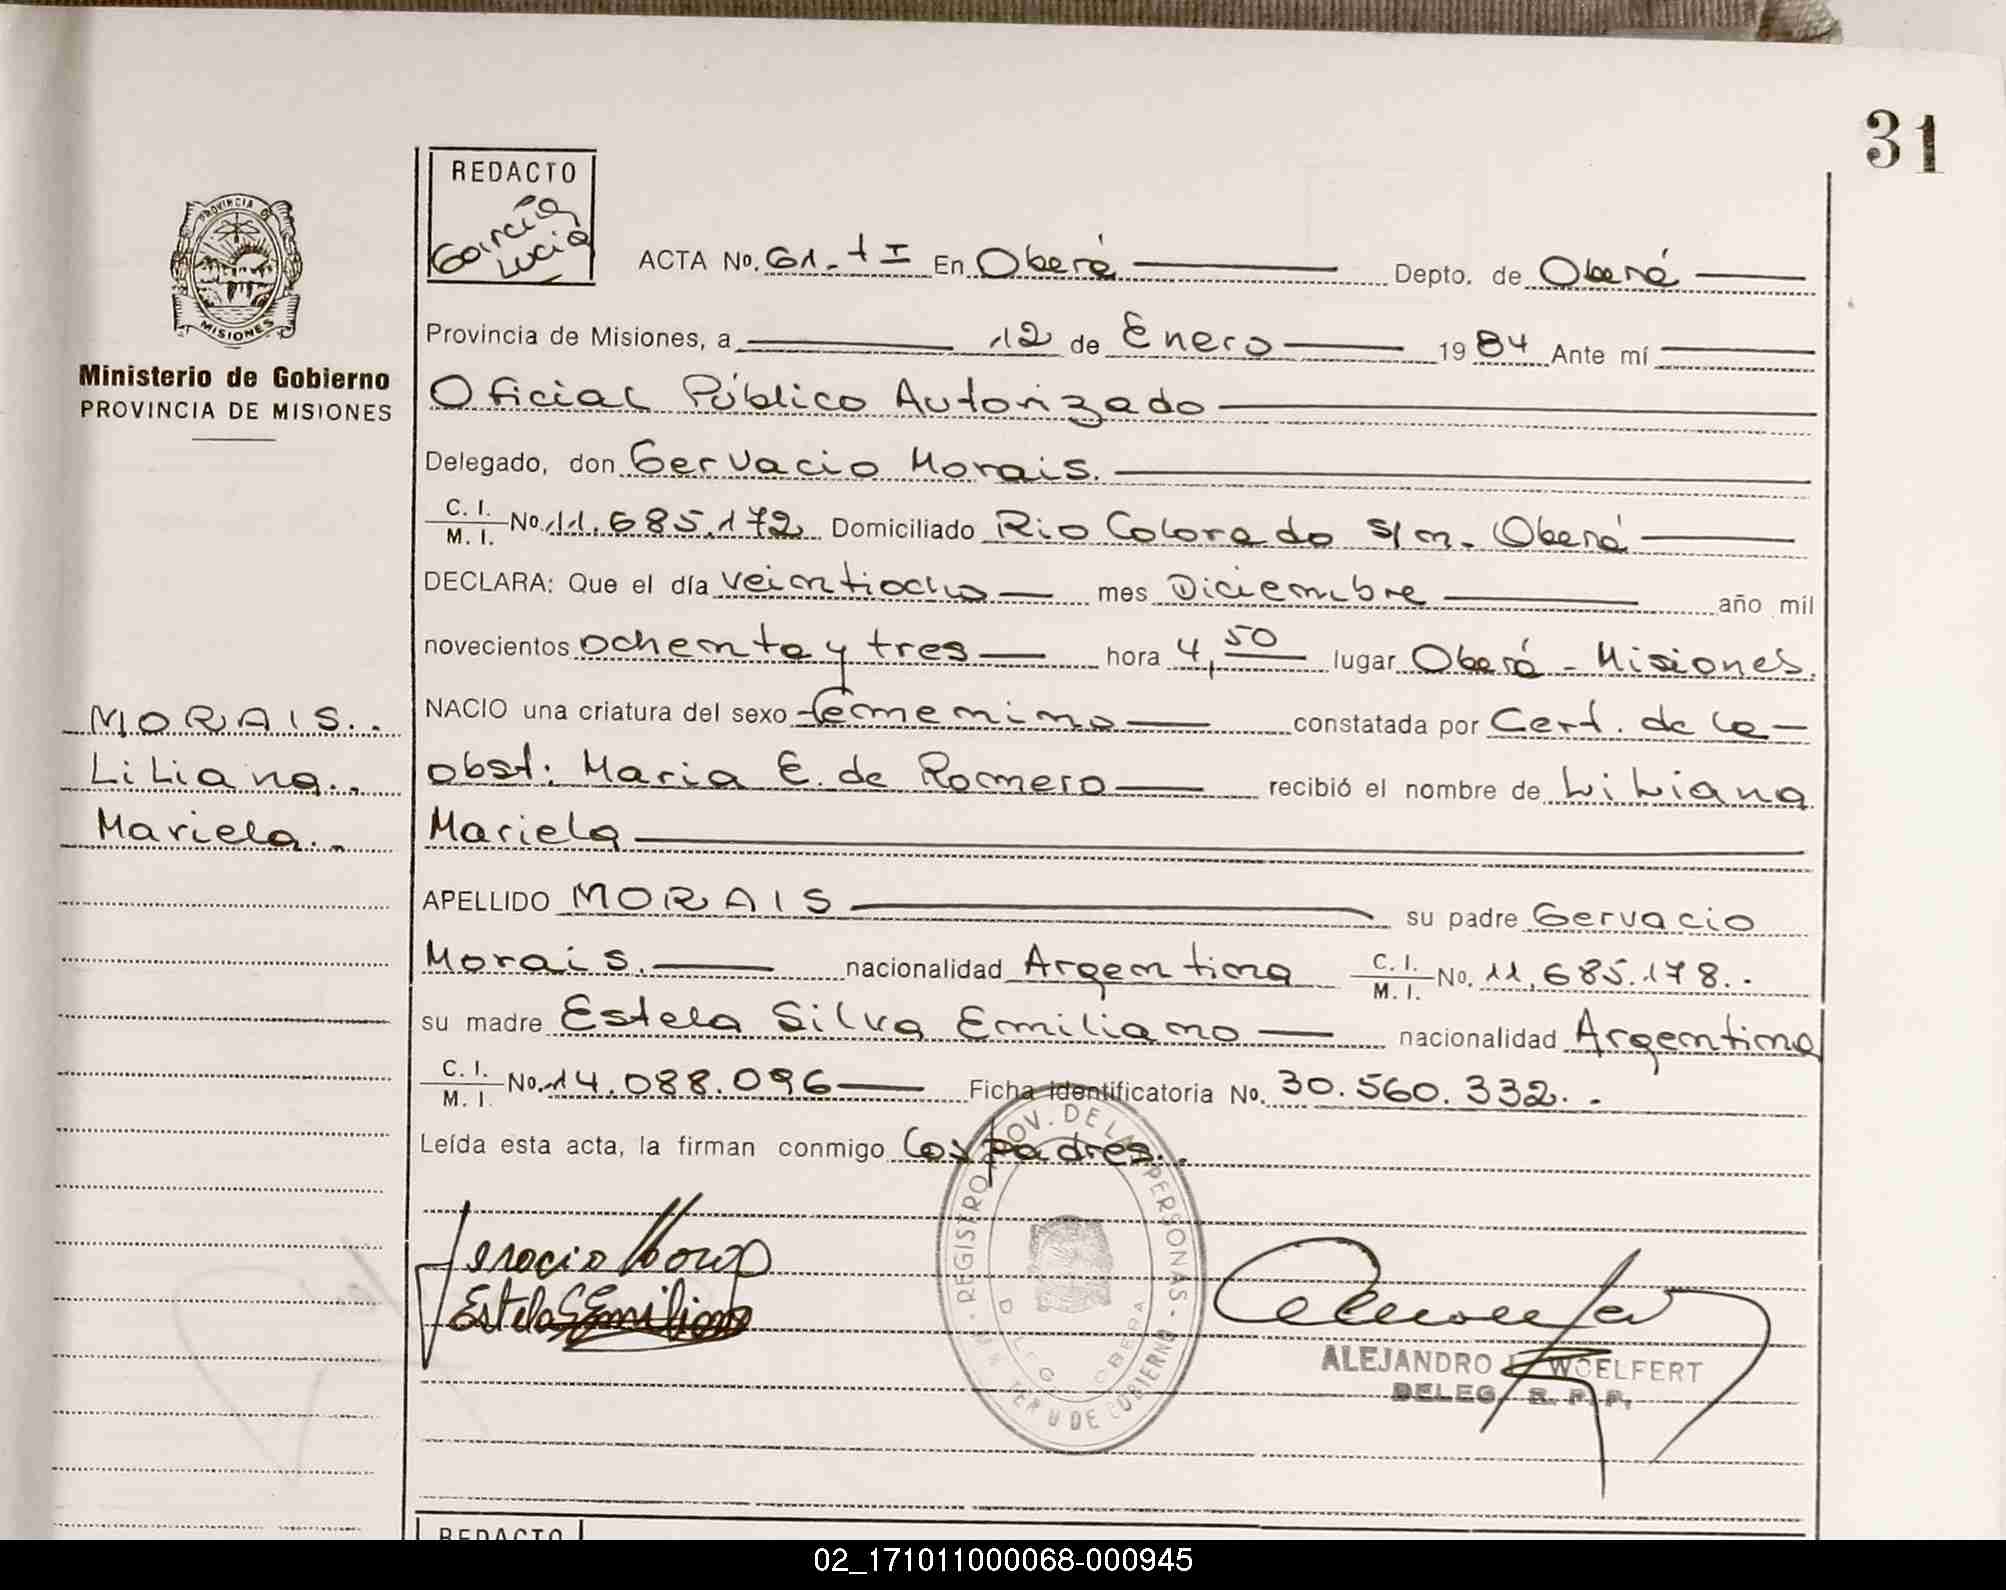 31
REDACTO
García
Lucía
PROVINCIA DE
MISIONES
Ministerio de Gobierno
PROVINCIA DE MISIONES
ACTA No. 61.- t I En Oberá Depto. de Oberá
Provincia de Misiones, a 12 de Enero 1984 Ante mí
Oficial Público Autorizado
Delegado, don Gervacio Morais.
C. I. / M. I. No. 11.685.172 Domiciliado Rio Colorado s/n. Oberá
DECLARA: Que el día veintiocho mes Diciembre año mil
novecientos ochenta y tres hora 4,50 lugar Oberá - Misiones.
NACIO una criatura del sexo femenino constatada por Cert. de la
obst: Maria E. de Romero recibió el nombre de Liliana
Mariela
MORAIS..
Liliana..
Mariela..
APELLIDO MORAIS su padre Gervacio
Morais. nacionalidad Argentina C. I. / M. I. No. 11.685.178..
su madre Estela Silva Emiliano nacionalidad Argentina
C. I. / M. I. No. 14.088.096 Ficha identificatoria No. 30.560.332..
Leída esta acta, la firman conmigo los padres..
REGISTRO PROV. DE LAS PERSONAS
DE GOBIERNO
ALEJANDRO WOELFERT
DELEG. R. P. P.
REDACTO
02_171011000068-000945